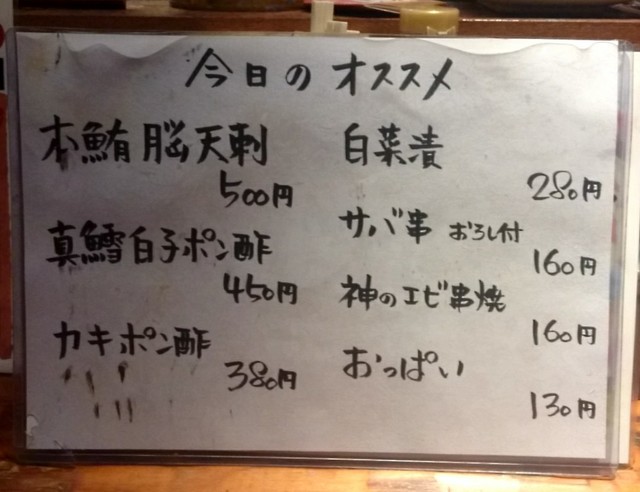 今日のオススメ
本鮪脳天刺
500円
真鱈白子ポン酢
450円
カキポン酢
380円
白菜漬
280円
サバ串 おろし付
160円
神のエビ串焼
160円
おっぱい
130円